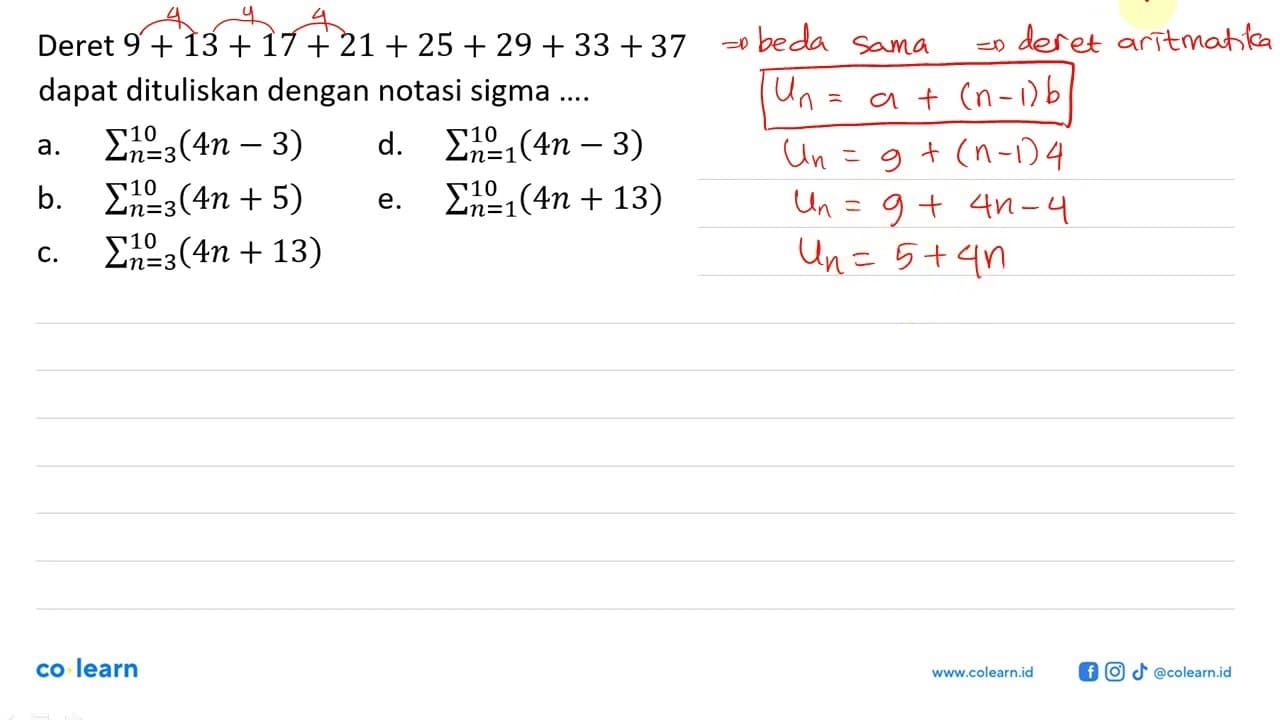 4 4 4
Deret 9 + 13 + 17 + 21 + 25 + 29 + 33 + 37 ⇒ beda sama ⇒ deret aritmatika
dapat dituliskan dengan notasi sigma ....
Un = a + (n-1)b
a. ∑_{n=3}^{10}(4n − 3) d. ∑_{n=1}^{10}(4n − 3)
Un = 9 + (n-1)4
b. ∑_{n=3}^{10}(4n + 5) e. ∑_{n=1}^{10}(4n + 13)
Un = 9 + 4n - 4
c. ∑_{n=3}^{10}(4n + 13)
Un = 5 + 4n
co·learn
www.colearn.id @colearn.id